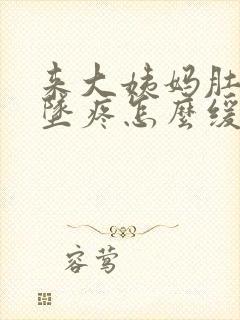 来大姨妈肚
坠疼怎麽缓
容莺